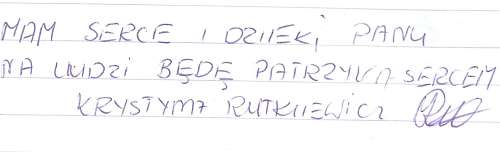 MAM SERCE I DZIĘKI PANU
NA LUDZI BĘDĘ PATRZYŁA SERCEM
KRYSTYNA RUTKIEWICZ